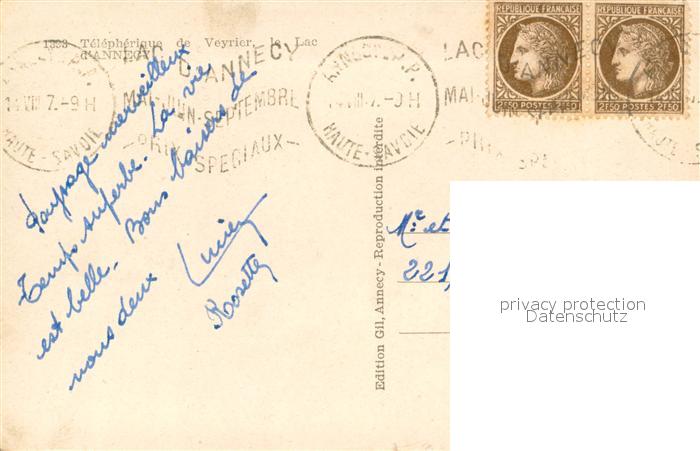 1393 Téléphérique de Veyrier, le Lac
d'ANNECY
ANNECY R.P.
14 VIII 7.-9 H
HAUTE-SAVOIE
LAC D'ANNECY
MAI-JUIN-SEPTEMBRE
-PRIX SPECIAUX-
ANNECY R.P.
14 VIII 7.-9 H
HAUTE-SAVOIE
LAC D'ANNECY
MAI-JUIN-
-PRIX SPE
HAUTE-S
REPUBLIQUE FRANÇAISE
2F50 POSTES 2F50
REPUBLIQUE FRANÇAISE
2F50 POSTES 2F50
Paysage merveilleux
Temps superbe. La vie
est belle. Bons baisers de
nous deux
Lucien
Rosette
Edition Gil, Annecy - Reproduction interdite
Me et
221,
privacy protection
Datenschutz